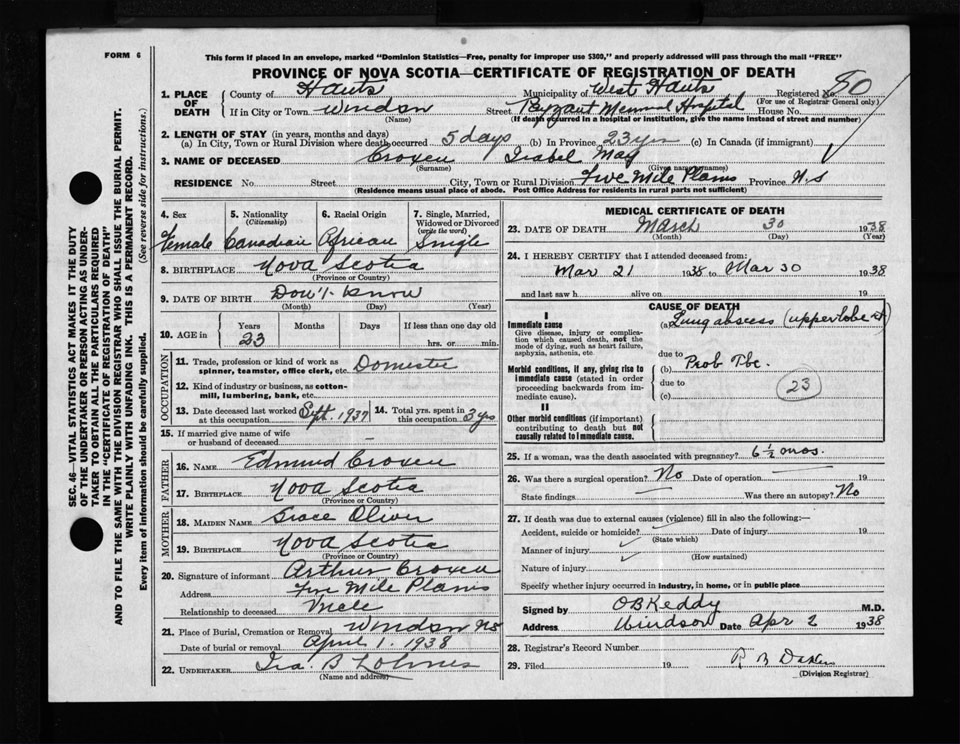 FORM 6
This form if placed in an envelope, marked "Dominion Statistics—Free, penalty for improper use $300," and properly addressed will pass through the mail "FREE"
PROVINCE OF NOVA SCOTIA—CERTIFICATE OF REGISTRATION OF DEATH
1. PLACE OF DEATH
County of Hants Municipality of West Hants Registered No. 80
(For use of Registrar General only)
If in City or Town Windsor Street Payzant Memorial Hospital House No.
(Name) (If death occurred in a hospital or institution, give the name instead of street and number)
2. LENGTH OF STAY (in years, months and days)
(a) In City, Town or Rural Division where death occurred 5 days (b) In Province 23 yrs (c) In Canada (if immigrant)
3. NAME OF DECEASED Croxen Isabel May
(Surname) (Given name or names)
RESIDENCE No. Street City, Town or Rural Division Five Mile Plains Province N.S
(Residence means usual place of abode. Post Office Address for residents in rural parts not sufficient)
SEC. 46—VITAL STATISTICS ACT MAKES IT THE DUTY
OF THE UNDERTAKER OR PERSON ACTING AS UNDER-
TAKER TO OBTAIN ALL THE PARTICULARS REQUIRED
IN THE "CERTIFICATE OF REGISTRATION OF DEATH"
AND TO FILE THE SAME WITH THE DIVISION REGISTRAR WHO SHALL ISSUE THE BURIAL PERMIT.
WRITE PLAINLY WITH UNFADING INK. THIS IS A PERMANENT RECORD.
Every item of information should be carefully supplied. (See reverse side for instructions.)
4. Sex 5. Nationality (Citizenship) 6. Racial Origin 7. Single, Married, Widowed or Divorced (write the word)
Female Canadian African Single
8. BIRTHPLACE Nova Scotia
(Province or Country)
9. DATE OF BIRTH Don't know
(Month) (Day) (Year)
10. AGE in Years Months Days If less than one day old
23 hrs. or min.
OCCUPATION
11. Trade, profession or kind of work as spinner, teamster, office clerk, etc. Domestic
12. Kind of industry or business, as cotton-mill, lumbering, bank, etc.
13. Date deceased last worked at this occupation Sept. 1937 14. Total yrs. spent in this occupation 3 yrs
15. If married give name of wife or husband of deceased —
FATHER
16. NAME Edmund Croxen
17. BIRTHPLACE Nova Scotia
(Province or Country)
MOTHER
18. MAIDEN NAME Grace Oliver
19. BIRTHPLACE Nova Scotia
(Province or Country)
20. Signature of informant Arthur Croxen
Address Five Mile Plains
Relationship to deceased Uncle
21. Place of Burial, Cremation or Removal Windsor NS
Date of burial or removal April 1, 1938
22. UNDERTAKER Ira. B Lohnes
(Name and address)
MEDICAL CERTIFICATE OF DEATH
23. DATE OF DEATH March 30 1938
(Month) (Day) (Year)
24. I HEREBY CERTIFY that I attended deceased from:
Mar 21 1938 to Mar 30 1938
and last saw h alive on 19
CAUSE OF DEATH
I
Immediate cause
Give disease, injury or complica-
tion which caused death, not the
mode of dying, such as heart failure,
asphyxia, asthenia, etc
(a) Lung abscess (upper lobe rt)
due to
Morbid conditions, if any, giving rise to
immediate cause (stated in order
proceeding backwards from im-
mediate cause).
(b) Prob Tbc.
due to
(c) 23
II
Other morbid conditions (if important)
contributing to death but not
causally related to immediate cause.
25. If a woman, was the death associated with pregnancy? 6½ mos.
26. Was there a surgical operation? No Date of operation — 19
State findings — Was there an autopsy? No
27. If death was due to external causes (violence) fill in also the following:—
Accident, suicide or homicide? Date of injury 19
(State which)
Manner of injury
(How sustained)
Nature of injury
Specify whether injury occurred in industry, in home, or in public place
Signed by O B Keddy M.D.
Address Windsor Date Apr 2 1938
28. Registrar's Record Number
29. Filed 19
(Division Registrar)